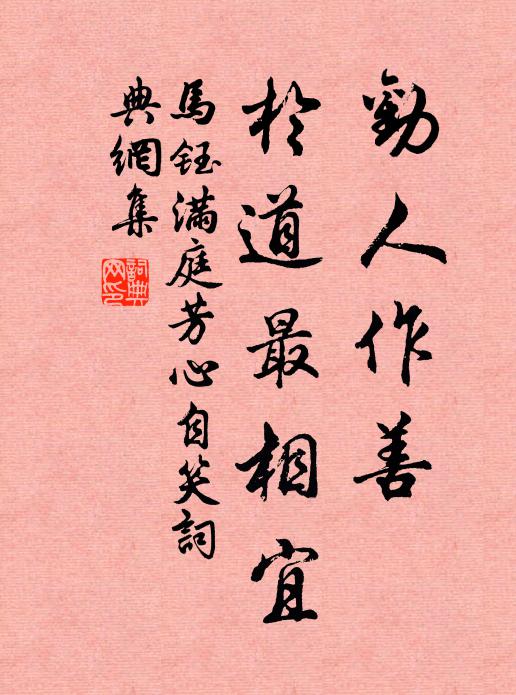 勸人作善
於道最相宜
馬鈺滿庭芳心自笑詞
典網集
詞典
网印